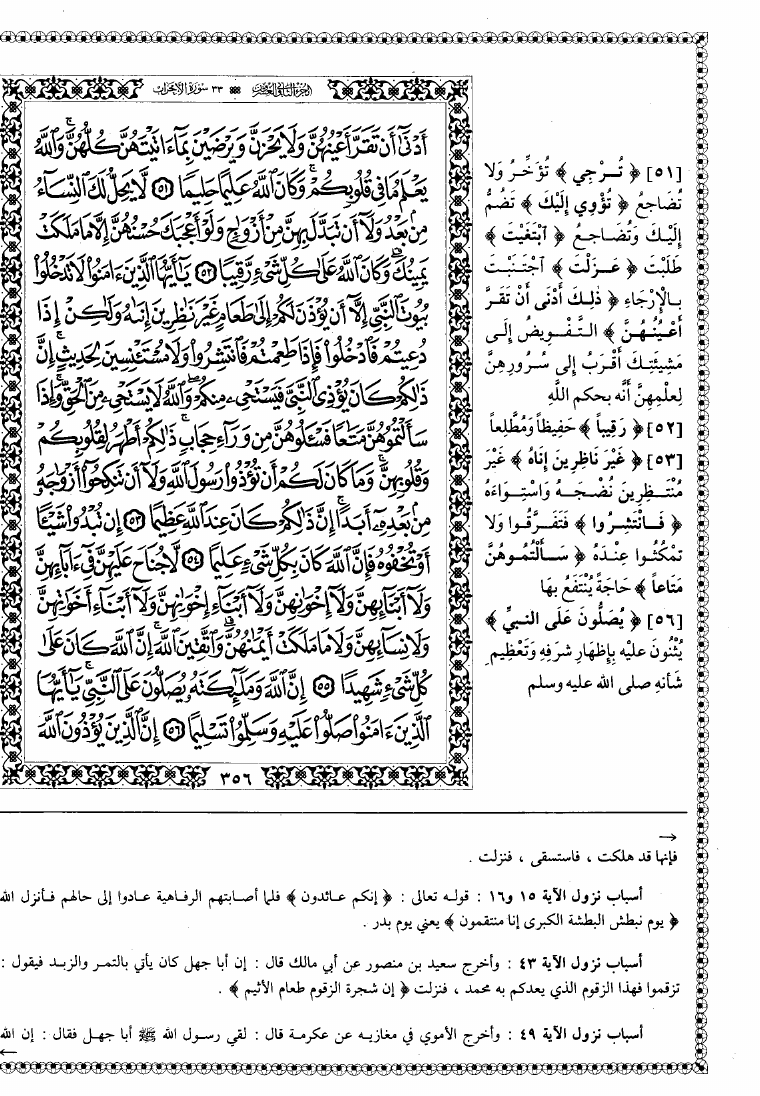 الجزء الثاني والعشرون ٣٣ سورة الأحزاب
أَدْنَىٰٓ أَن تَقَرَّ أَعْيُنُهُنَّ وَلَا يَحْزَنَّ وَيَرْضَيْنَ بِمَآ ءَاتَيْتَهُنَّ كُلُّهُنَّ وَٱللَّهُ
يَعْلَمُ مَا فِى قُلُوبِكُمْ وَكَانَ ٱللَّهُ عَلِيمًا حَلِيمًا ٥١ لَّا يَحِلُّ لَكَ ٱلنِّسَآءُ
مِنۢ بَعْدُ وَلَآ أَن تَبَدَّلَ بِهِنَّ مِنْ أَزْوَٰجٍ وَلَوْ أَعْجَبَكَ حُسْنُهُنَّ إِلَّا مَا مَلَكَتْ
يَمِينُكَ وَكَانَ ٱللَّهُ عَلَىٰ كُلِّ شَىْءٍ رَّقِيبًا ٥٢ يَٰٓأَيُّهَا ٱلَّذِينَ ءَامَنُوا۟ لَا تَدْخُلُوا۟
بُيُوتَ ٱلنَّبِىِّ إِلَّآ أَن يُؤْذَنَ لَكُمْ إِلَىٰ طَعَامٍ غَيْرَ نَٰظِرِينَ إِنَىٰهُ وَلَٰكِنْ إِذَا
دُعِيتُمْ فَٱدْخُلُوا۟ فَإِذَا طَعِمْتُمْ فَٱنتَشِرُوا۟ وَلَا مُسْتَـْٔنِسِينَ لِحَدِيثٍ إِنَّ
ذَٰلِكُمْ كَانَ يُؤْذِى ٱلنَّبِىَّ فَيَسْتَحْىِۦ مِنكُمْ وَٱللَّهُ لَا يَسْتَحْىِۦ مِنَ ٱلْحَقِّ وَإِذَا
سَأَلْتُمُوهُنَّ مَتَٰعًا فَسْـَٔلُوهُنَّ مِن وَرَآءِ حِجَابٍ ذَٰلِكُمْ أَطْهَرُ لِقُلُوبِكُمْ
وَقُلُوبِهِنَّ وَمَا كَانَ لَكُمْ أَن تُؤْذُوا۟ رَسُولَ ٱللَّهِ وَلَآ أَن تَنكِحُوٓا۟ أَزْوَٰجَهُۥ
مِنۢ بَعْدِهِۦٓ أَبَدًا إِنَّ ذَٰلِكُمْ كَانَ عِندَ ٱللَّهِ عَظِيمًا ٥٣ إِن تُبْدُوا۟ شَيْـًٔا
أَوْ تُخْفُوهُ فَإِنَّ ٱللَّهَ كَانَ بِكُلِّ شَىْءٍ عَلِيمًا ٥٤ لَّا جُنَاحَ عَلَيْهِنَّ فِىٓ ءَابَآئِهِنَّ
وَلَآ أَبْنَآئِهِنَّ وَلَآ إِخْوَٰنِهِنَّ وَلَآ أَبْنَآءِ إِخْوَٰنِهِنَّ وَلَآ أَبْنَآءِ أَخَوَٰتِهِنَّ
وَلَا نِسَآئِهِنَّ وَلَا مَا مَلَكَتْ أَيْمَٰنُهُنَّ وَٱتَّقِينَ ٱللَّهَ إِنَّ ٱللَّهَ كَانَ عَلَىٰ
كُلِّ شَىْءٍ شَهِيدًا ٥٥ إِنَّ ٱللَّهَ وَمَلَٰٓئِكَتَهُۥ يُصَلُّونَ عَلَى ٱلنَّبِىِّ يَٰٓأَيُّهَا
ٱلَّذِينَ ءَامَنُوا۟ صَلُّوا۟ عَلَيْهِ وَسَلِّمُوا۟ تَسْلِيمًا ٥٦ إِنَّ ٱلَّذِينَ يُؤْذُونَ ٱللَّهَ
٣٥٦
[٥١] ﴿ تُـرْجِي ﴾ تُؤَخِّرُ وَلا
تُضَاجِعُ ﴿ تُؤْوِي إِلَيْكَ ﴾ تَضُمُّ
إِلَيْكَ وَتُضَاجِعُ ﴿ ٱبْتَغَيْتَ ﴾
طَلَبْتَ ﴿ عَـزَلْتَ ﴾ ٱجْتَنَبْتَ
بِالْإِرْجَاءِ ﴿ ذٰلِكَ أَدْنَى أَنْ تَقَرَّ
أَعْيُنُهُنَّ ﴾ التَّفْوِيضُ إِلَى
مَشِيئَتِكَ أَقْرَبُ إِلى سُرُورِهِنَّ
لِعِلْمِهِنَّ أَنَّه بحكم اللَّهِ
[٥٢] ﴿ رَقِيباً ﴾ حَفِيظاً وَمُطَّلِعاً
[٥٣] ﴿ غَيْرَ نَاظِرِينَ إِنَاهُ ﴾ غَيْرَ
مُنْتَـظِرِينَ نُضْجَـهُ وَاسْتِـوَاءَهُ
﴿ فَـانْتَشِرُوا ﴾ فَتَفَرَّقُوا وَلا
تمْكُثُـوا عِنْدَهُ ﴿ سَـأَلْتُمُوهُنَّ
مَتَاعاً ﴾ حَاجَةً يُنْتَفَعُ بهَا
[٥٦] ﴿ يُصَلُّونَ عَلَى النـبيِّ ﴾
يُثْنُونَ عليْه بِإِظْهَارِ شرَفِهِ وَتَعْظِيمِ
شَأنهِ صلى الله عليه وسلم
→
فإنها قد هلكت ، فاستسقى ، فنزلت .
أسباب نزول الآية ١٥ و١٦ : قولـه تعالى : ﴿ إنكم عـائدون ﴾ فلما أصـابتهم الرفـاهية عـادوا إلى حالهم فـأنزل الله
﴿ يوم نبطش البطشة الكبرى إنا منتقمون ﴾ يعني يوم بدر .
أسباب نزول الآية ٤٣ : وأخرج سعيد بن منصور عن أبي مالك قال : إن أبا جهل كان يأتي بالتمر والزبـد فيقول :
تزقموا فهذا الزقوم الذي يعدكم به محمد ، فنزلت ﴿ إن شجرة الزقوم طعام الأثيم ﴾ .
أسباب نزول الآية ٤٩ : وأخرج الأموي في مغازيـه عن عكرمـة قال : لقي رسـول الله ﷺ أبا جهـل فقال : إن الله
←